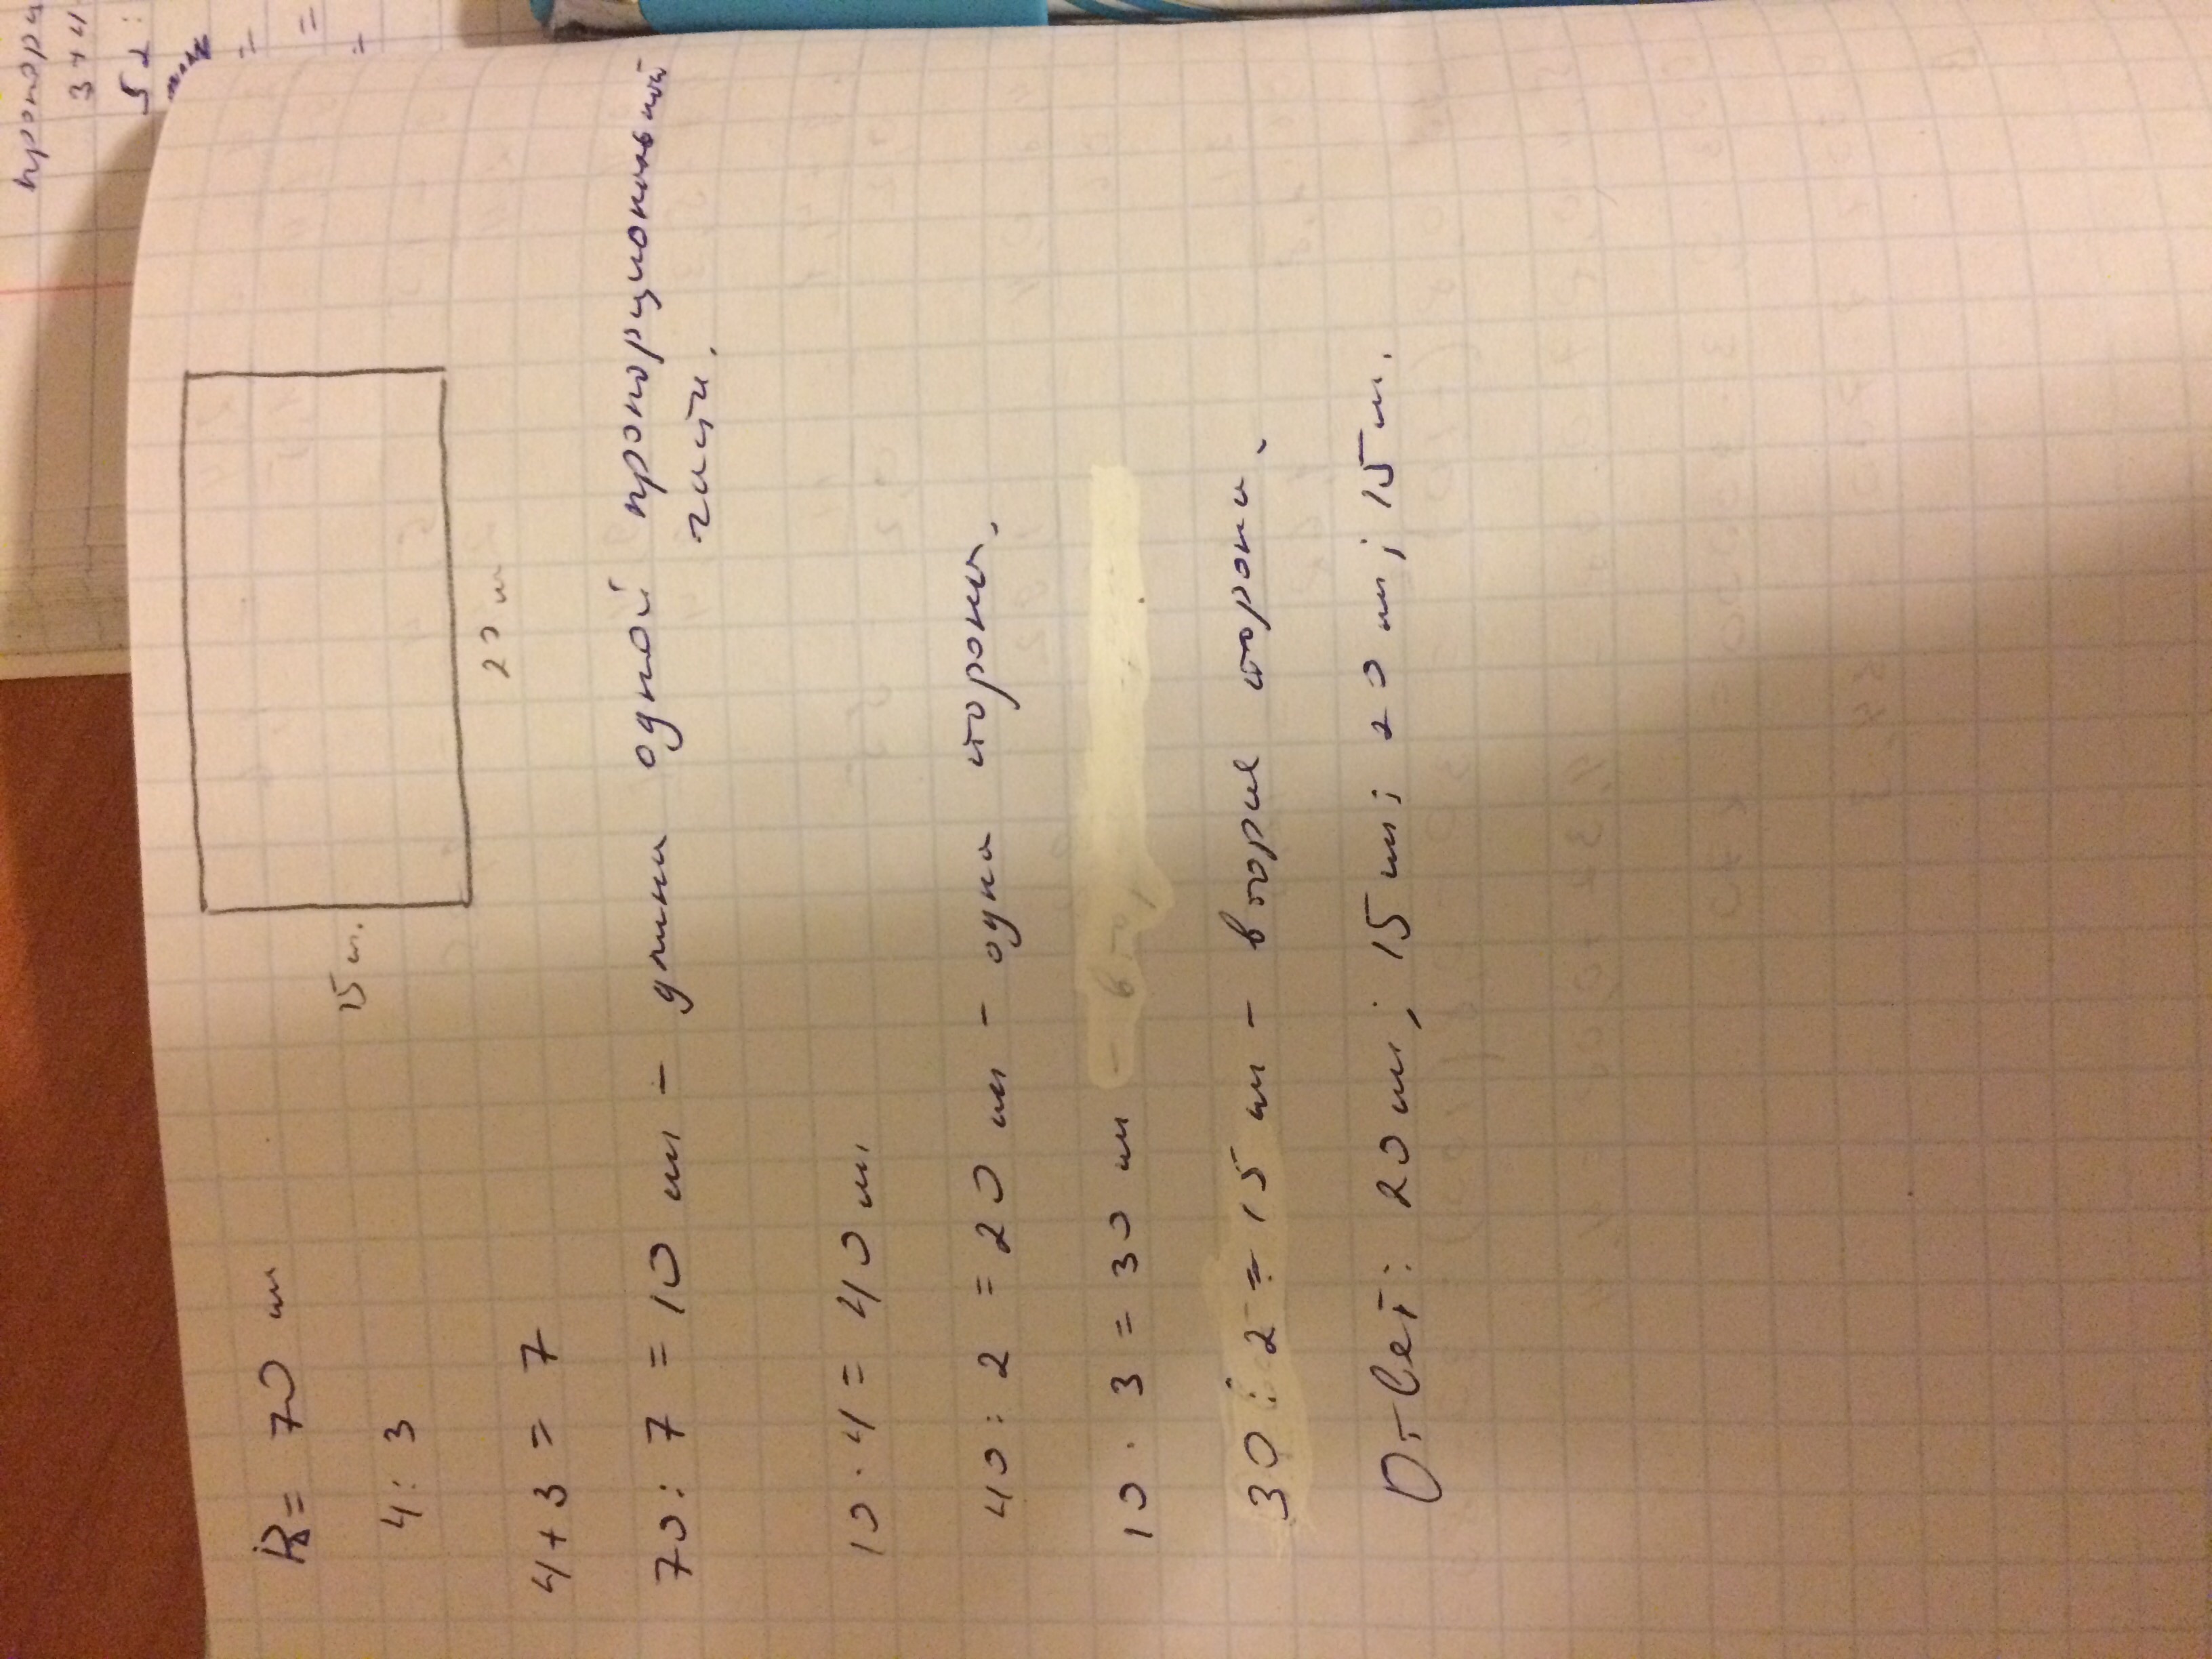 P = 70 м
4 : 3
15 м.
20 м
4 + 3 = 7
70 : 7 = 10 м - длина одной пропорциональной
части.
10 · 4 = 40 м.
40 : 2 = 20 м - одна сторона.
10 · 3 = 30 м
30 : 2 = 15 м - вторая сторона.
Ответ: 20 м; 15 м; 20 м; 15 м.
3+4
52 :